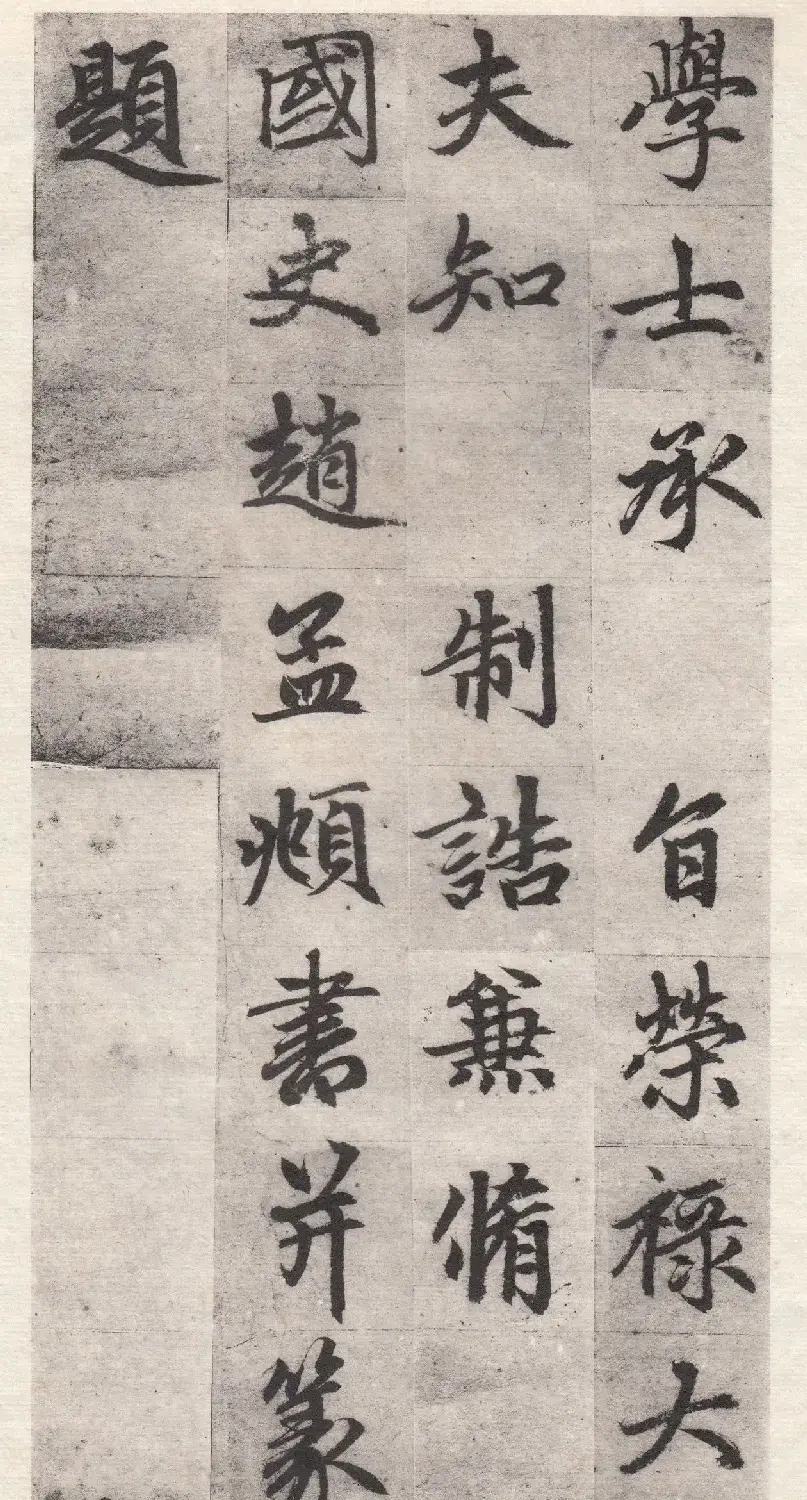 學士承旨榮祿大
夫知制誥兼脩
國史趙孟頫書并篆
題